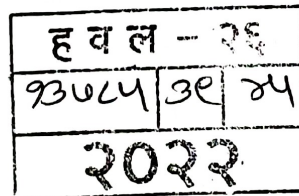 ह व ल - २६
१३७८५ ३९ ४५
२०२२